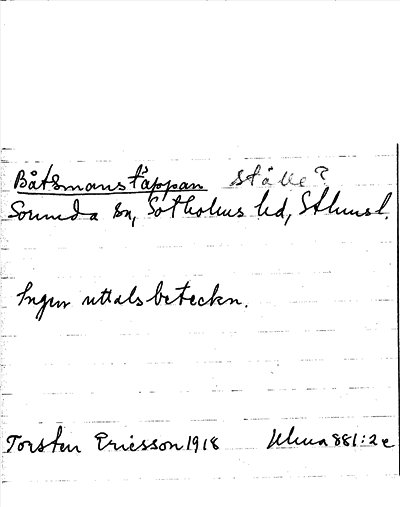 Båtsmanstäppan ställe?
Sorunda sn, Sotholms hd, Sthlmsl.
Ingen uttalsbeteckn.
Torsten Ericsson 1918 Ulma 881:2c